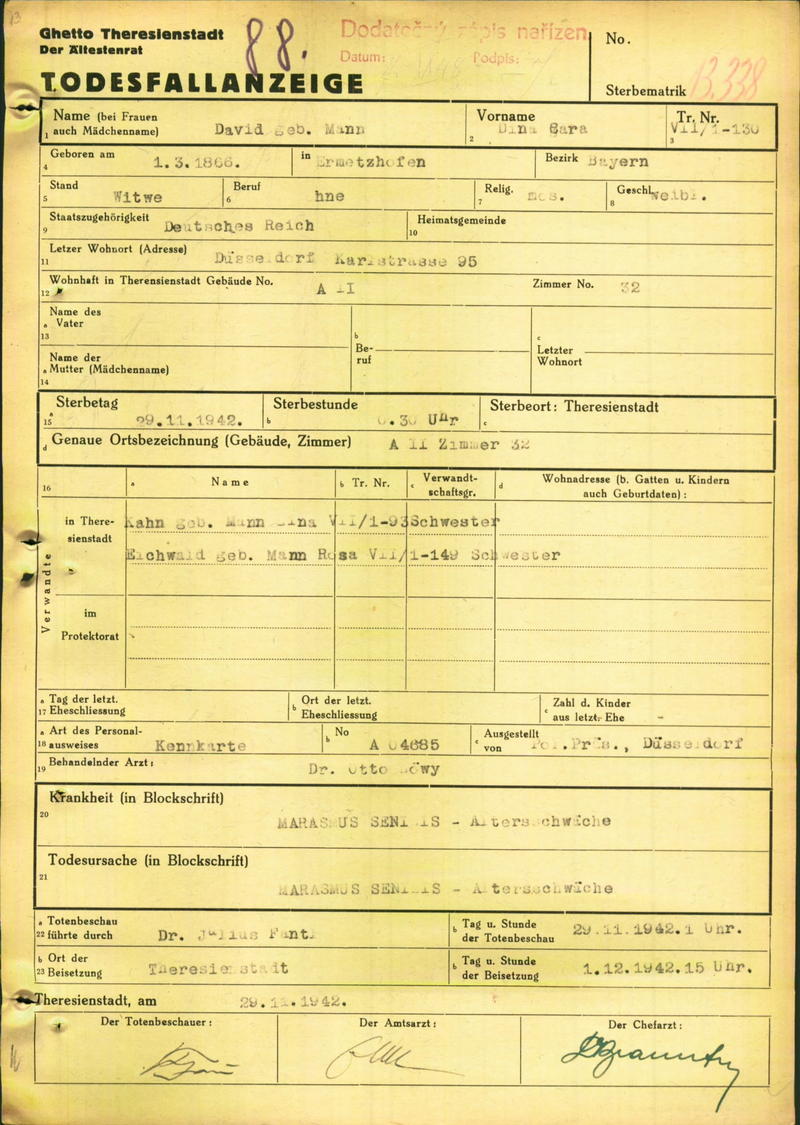 13
Ghetto Theresienstadt
Der Ältestenrat
88.
Dodatečný zápis nařízen
Datum:
Podpis:
No.
TODESFALLANZEIGE
Sterbematrik
13.338
Name (bei Frauen
1 auch Mädchenname)
David geb. Mann
Vorname
2
Sara
Tr. Nr.
3
VII/1-130
Geboren am
4
1.3.1866.
in
Ermetzhofen
Bezirk
Bayern
Stand
5
Witwe
Beruf
6
hne
Relig.
7
mos.
Geschl.
8
weibl.
Staatszugehörigkeit
9
Deutsches Reich
Heimatsgemeinde
10
Letzer Wohnort (Adresse)
11
Düsseldorf Karlstrasse 95
Wohnhaft in Therensienstadt Gebäude No.
12
A II
Zimmer No.
32
Name des
a Vater
13
b
Be-
ruf
c
Letzter
Wohnort
Name der
a Mutter (Mädchenname)
14
Sterbetag
a
15
29.11.1942.
Sterbestunde
b
0.30 Uhr
Sterbeort: Theresienstadt
c
d Genaue Ortsbezeichnung (Gebäude, Zimmer)
A II Zimmer 32
16
a Name
b Tr. Nr.
c Verwandt-
schaftsgr.
d Wohnadresse (b. Gatten u. Kindern
auch Geburtdaten):
Verwandte
in There-
sienstadt
Kahn geb. Mann Lina VII/1-93 Schwester
Eichwald geb. Mann Rosa VII/1-149 Schwester
im
Protektorat
a Tag der letzt.
17 Eheschliessung
b Ort der letzt.
Eheschliessung
c Zahl d. Kinder
aus letzt. Ehe
-
a Art des Personal-
18 ausweises
Kennkarte
b No
A 04685
c Ausgestellt
von
Pol.Präs., Düsseldorf
Behandelnder Arzt:
19
Dr. Otto Löwy
Krankheit (in Blockschrift)
20
MARASMUS SENILIS - Altersschwäche
Todesursache (in Blockschrift)
21
MARASMUS SENILIS - Altersschwäche
a Totenbeschau
22 führte durch
Dr. Julius Fantl
b Tag u. Stunde
der Totenbeschau
29.11.1942.1 Uhr.
b Ort der
23 Beisetzung
Theresienstadt
b Tag u. Stunde
der Beisetzung
1.12.1942.15 Uhr.
Theresienstadt, am
29.11.1942.
Der Totenbeschauer:
Der Amtsarzt:
Der Chefarzt: